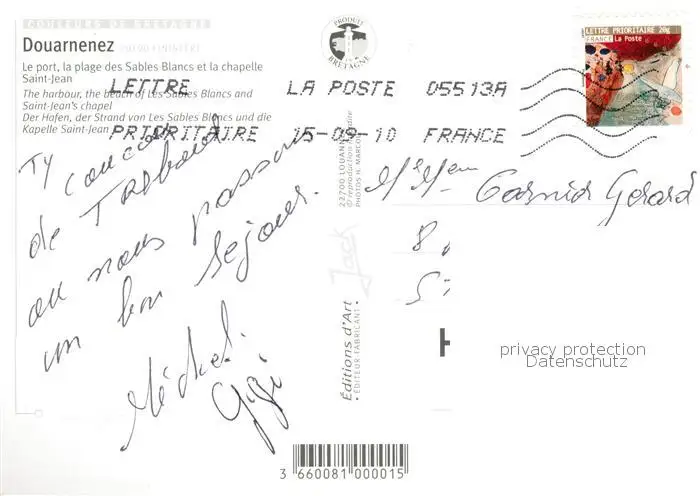 COULEURS DE BRETAGNE
Douarnenez
Le port, la plage des Sables Blancs et la chapelle
Saint-Jean
The harbour, the beach of Les Sables Blancs and
Saint-Jean's chapel
Der Hafen, der Strand von Les Sables Blancs und die
Kapelle Saint-Jean
PRODUIT
EN
BRETAGNE
LETTRE PRIORITAIRE 20g
FRANCE La Poste
LETTRE LA POSTE 05513A
PRIORITAIRE 15-09-10 FRANCE
Ty
de
ou nous passons
un bon séjour.
Michel.
Gigi
Garnier Gerard
8
5
22700 LOUANNEC
© reproduction interdite
PHOTOS H. MARCOU
Jack
Editions d'Art
• ÉDITEUR-FABRICANT •
privacy protection
Datenschutz
3 660081 000015